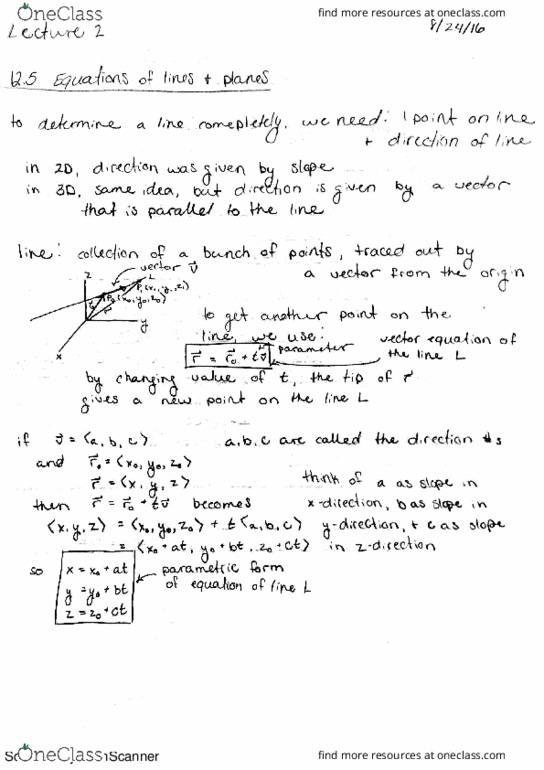 OneClass
find more resources at oneclass.com
Lecture 2
8/24/16
12.5 Equations of lines + planes
to determine a line comepletely, we need: 1 point on line
+ direction of line
in 2D, direction was given by slope
in 3D, same idea, but direction is given by a vector
that is parallel to the line
line: collection of a bunch of points, traced out by
a vector from the origin
vector v⃗
z
L
P(x,y,z)
P₀(x₀,y₀,z₀)
y
x
to get another point on the
line, we use:
r⃗ = r⃗₀ + tv⃗
parameter
vector equation of
the line L
by changing value of t, the tip of r⃗
gives a new point on the line L
if v⃗ = ⟨a, b, c⟩
a, b, c are called the direction #s
and r⃗₀ = ⟨x₀, y₀, z₀⟩
r⃗ = ⟨x, y, z⟩
think of a as slope in
then r⃗ = r⃗₀ + tv⃗ becomes
x-direction, b as slope in
⟨x, y, z⟩ = ⟨x₀, y₀, z₀⟩ + t⟨a, b, c⟩
y-direction, + c as slope
= ⟨x₀ + at, y₀ + bt, z₀ + ct⟩
in z-direction
so
x = x₀ + at
y = y₀ + bt
z = z₀ + ct
parametric form
of equation of line L
OneClass
Scanner
find more resources at oneclass.com